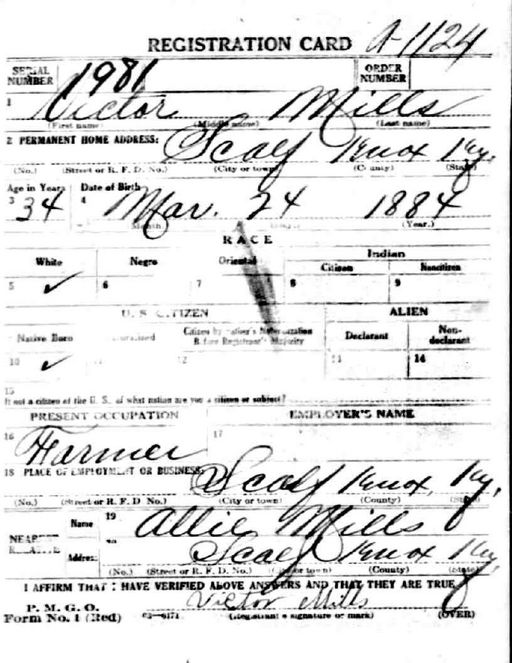 REGISTRATION CARD A-1124
SERIAL NUMBER 1981 ORDER NUMBER
1 Victor Mills
(First name) (Middle name) (Last name)
2 PERMANENT HOME ADDRESS: Scalf Knox Ky.
(No.) (Street or R. F. D. No.) (City or town) (County) (State)
Age in Years Date of Birth
3 34 4 Mar. 24 1884
(Month.) (Year.)
RACE
White Negro Oriental Indian
Citizen Noncitizen
5 ✓ 6 7 8 9
U. S. CITIZEN ALIEN
Native Born Naturalized Citizen by Father's Naturalization Before Registrant's Majority Declarant Non-declarant
10 ✓ 12 13 14
15
If not a citizen of the U. S. of what nation are you a citizen or subject?
PRESENT OCCUPATION EMPLOYER'S NAME
16 Farmer 17
18 PLACE OF EMPLOYMENT OR BUSINESS: Scalf Knox, Ky,
(No.) (Street or R. F. D. No.) (City or town) (County) (State)
NEAREST RELATIVE Name 19 Allie Mills
Address 20 Scalf Knox Ky,
(No.) (Street or R. F. D. No.) (City or town) (County) (State)
I AFFIRM THAT I HAVE VERIFIED ABOVE ANSWERS AND THAT THEY ARE TRUE
P. M. G. O. Victor Mills
Form No. 1 (Red) 03-6171 (Registrant's signature or mark) (OVER)